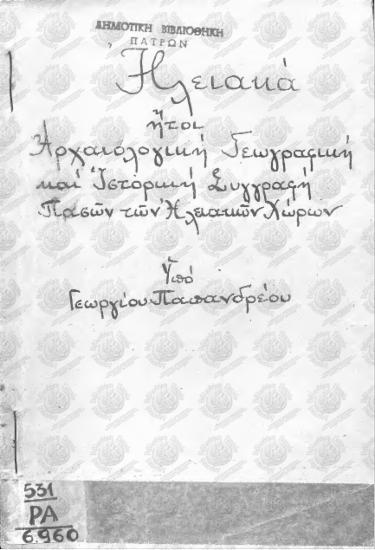 ΔΗΜΟΤΙΚΗ ΒΙΒΛΙΟΘΗΚΗ
ΠΑΤΡΩΝ
Ἠλειακά
ἤτοι
Ἀρχαιολογική Γεωγραφική
καί Ἱστορική Συγγραφή
Πασῶν τῶν Ἠλειακῶν Χώρων
Ὑπό
Γεωργίου Παπανδρέου
531
PA
6.960